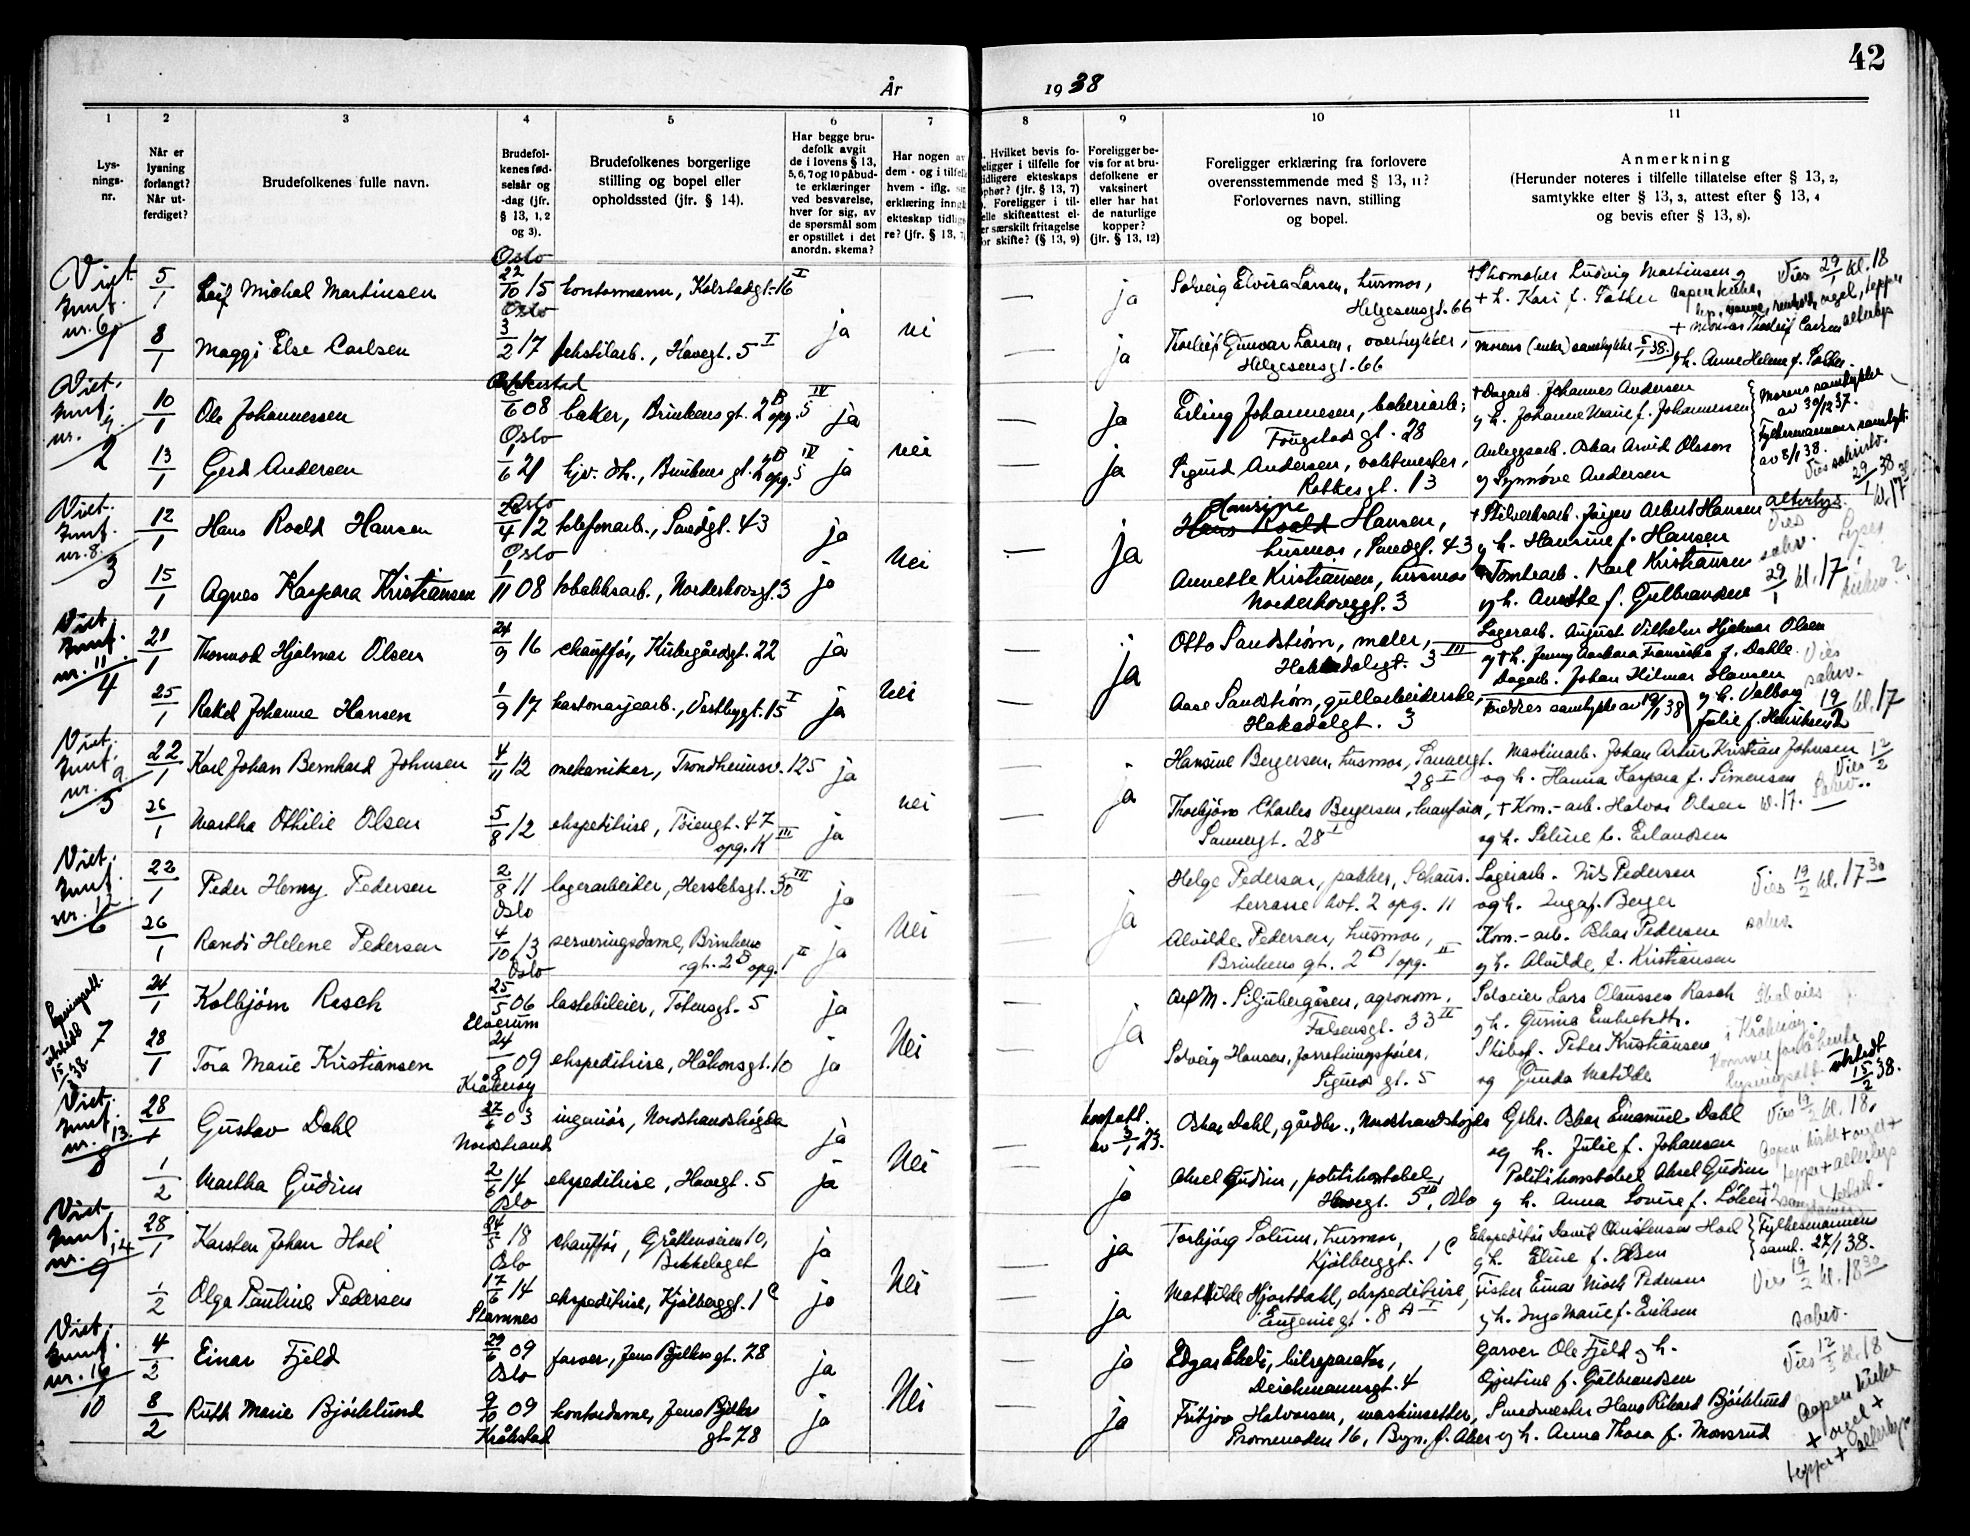 42
År 1938
1
2
3
4
5
6
7
8
9
10
11
Lys-
nings-
nr.
Når er
lysning
forlangt?
Når ut-
ferdiget?
Brudefolkenes fulle navn.
Brudefol-
kenes fød-
selsår og
-dag (jfr.
§ 13, 1, 2
og 3).
Brudefolkenes borgerlige
stilling og bopel eller
opholdssted (jfr. § 14).
Har begge bru-
defolk avgit
de i lovens § 13,
5, 6, 7 og 10 påbud-
te erklæringer
ved besvarelse,
hver for sig, av
de spørsmål som
er opstillet i det
anordn. skema?
Har nogen av
dem - og i tilfelle
hvem - iflg. sin
erklæring inng
ekteskap tidlig
re? (jfr. § 13, 7
Hvilket bevis fo-
religger i tilfelle for
tidligere ekteskaps
ophør? (jfr. § 13, 7)
Foreligger i til-
felle skifteattest el-
ler særskilt fritagelse
for skifte? (§ 13, 9)
Foreligger be-
vis for at bru-
defolkene er
vaksinert
eller har hat
de naturlige
kopper?
(jfr. § 13, 12)
Foreligger erklæring fra forlovere
overensstemmende med § 13, 11?
Forlovernes navn, stilling
og bopel.
Anmerkning
(Herunder noteres i tilfelle tillatelse efter § 13, 2,
samtykke efter § 13, 3, attest efter § 13, 4
og bevis efter § 13, 8).
Viet
nr. 6
1
5/1 Leif Michal Martinsen Oslo 22/10 15 kontormann, Kolstadgt. 16 I
ja nei — ja Solveig Elvira Larsen, husmor,
Helgesensgt. 66
+ Skomaker Ludvig Martinsen og
+ h. Kari f. Father
Vies 29/1 kl. 18
8/1 Maggi Else Carlsen Oslo 3/2 17 tekstilarb., Havegt. 5 I
— ja Thorleif Gunvar Larsen, overstykker,
Helgesensgt. 66
Morens (enke) samtykke 5/1 38.
og h. Anne Helene f.
Viet
nr.
2
10/1 Ole Johannessen 6/6 08 baker, Brinkens gt. 2 B opg. 5 IV ja
nei — ja Erling Johannesen, bakeriarb.,
Fougstads gt. 28
+ Dagarb. Johannes Andersen
og h. Johanne Marie f. Johannessen
Morens samtykke
av 30/12 37.
13/1 Gerd Andersen Oslo 1/6 21 hjv. dt., Brinkens gt. 2 B opg. 5 IV ja
— ja Sigurd Andersen, vaktmester,
Rathkesgt. 13
Anleggsarb. Oskar Arvid Olsson
og Synnøve Andersen
Fylkesmannens samtykke
av 8/1 38.
Vies sakristi.
29/1 38 kl. 17
Viet.
nr. 8.
3
12/1 Hans Roald Hansen Oslo 26/4 12 telefonarb., Sandgt. 43 ja
nei — ja Hansine
Hans Roald Hansen,
husmor, Sandgt. 43
+ Stilverksarb. Jørgen Artur Hansen
og h. Hansine f. Hansen
alterlys.
Vies
sakr.
15/1 Agnes Kaspara Kristiansen Oslo 1/11 08 tobakksarb., Norderhovsgt. 3 ja
Annette Kristiansen, husmor
Norderhovsgt. 3
Tomtearb. Karl Kristiansen
og h. Anette f. Gulbrandsen 29/1 kl. 17
Viet.
nr. 11
4
21/1 Thormod Hjalmar Olsen 24/9 16 chauffør, Kirkegårdsgt. 22 ja
nei — ja Otto Sandstrøm, maler,
Hakadalsgt. 3 III
Lagerarb. August Vilhelm Hjalmar Olsen
og + h. Jenny Barbara Franciska f. Dahle.
Vies
sakr.
25/1 Rakel Johanne Hansen 1/9 17 kartonasjearb., Vestbygt. 15 I ja
— Aase Sandstrøm, gullarbeiderske,
Hakadalsgt. 3
Dagarb. Johan Hilmar Hansen
og h. Valborg
Julie f. Henriksen
Fredres samtykke av 19/1 38
19/2 kl. 17
Viet.
nr. 9
5
22/1 Karl Johan Bernhard Johnsen 4/11 12 mekaniker, Trondheimsv. 125 ja
nei — ja Hansine Bergersen, husmor, Sannergt.
28 I
Maskinarb. Johan Artur Kristian Johnsen
og h. Hanna Kaspara f. Simensen
Vies 12/2
kl. 17. Sakr.
26/1 Martha Othilie Olsen 5/8 12 ekspeditrise, Tøiengt. 47
opg. K III ja
— Thorbjørn Charles Bergersen, chauffør,
Sannergt. 28 I
+ Kom.-arb. Halvor Olsen
og h. Seline f. Erlandsen
Viet.
nr. 12
6
22/1 Peder Henry Pedersen 2/8 11 lagerarbeider, Herslebsgt. 30 III ja
nei — ja Helge Pedersen, pakker, Schous.
terrasse hot. 2 opg. 11
Lagerarb. Nils Pedersen
og h. Inga f. Berger
Vies 19/2 kl. 17 30
sakr.
26/1 Randi Helene Pedersen Oslo 4/10 13 serveringsdame, Brinkens
gt. 2 B opg. 1 II ja
— Alvilde Pedersen, husmor,
Brinkens gt. 2 B opg. II
Kom.-arb. Oskar Pedersen
og h. Alvilde f. Kristiansen
Lysningsatt.
utstedt
15/2 38.
7
24/1 Kolbjørn Rasch Oslo 25/5 06 lastebileier, Totensgt. 5 ja
nei — ja Alf M. Siljubergåsen, agronom,
Falsensgt. 33 II
Solveier Lars Olaussen Rasch
og h. Gurina Embretsdtr.
Skal vies
i Kråkerøy.
28/1 Tora Marie Kristiansen Elverum 24/8 09 ekspeditrise, Håkonsgt. 10 ja
— Solveig Hansen, forretningsfører,
Sigurds gt. 5
Skibsf. Peter Kristiansen
og Gunda Matilde
Kommer for å hente
lysningsatt. utstedt
15/2 38.
Viet.
nr. 13
8
28/1 Gustav Dahl Kråkerøy 27/6 03 ingeniør, Nordstrandshøgda ja
nei — kopatt.
av 3/1 23.
Oskar Dahl, gårdbr., Nordstrandshøgda
Gbr. Oskar Emanuel Dahl
og h. Julie f. Johansen
Vies 19/2 kl. 18.
1/2 Martha Gudim Nordstrand 2/6 14 ekspeditrise, Havegt. 5 ja
— ja Aksel Gudim, politikonstabel,
Havegt. 5 III, Oslo
Politikonstabel Aksel Gudim
og h. Anna Lovise f. Løken
Aapen kirke + orgel +
tepper + alterlys
Viet
nr. 14
9
28/1 Karsten Johan Hoel Oslo 24/5 18 chauffør, Gråttenveien 10,
Bekkelaget ja
nei — ja Torbjørg Solum, husmor,
Kjølberggt. 1 C
Ekspeditør David Christensen Hoel
og h. Eline f. Olsen
Fylkesmannens
samt. 27/1 38.
1/2 Olga Pauline Pedersen Oslo 17/6 14 ekspeditrise, Kjølberggt. 1 C ja
— ja Mathilde Hjortdahl, ekspeditrise,
Eugeniegt. 8 A I
Fisker Einar Nioch Pedersen
og h. Inga Marie f. Eriksen
Vies 19/2 kl. 18 30
sakr.
Viet.
nr. 16
10
4/2 Einar Fjeld Stamnes 29/6 09 farver, Jens Bjelkes gt. 78 ja
Nei — ja Edgar Ekeli, bilreparatør,
Deichmannsgt. 4
Garver Ole Fjeld og h.
Gjertine f. Gulbrandsen
Vies 12/3 kl. 18
8/2 Ruth Marie Bjørklund Oslo 9/10 09 kontordame, Jens Bjelkes
gt. 78 ja
Kråkstad
— ja Fritjov Halvorsen, maskinsetter,
Promenaden 16, Bryn. f. Aker
Smedmester Hans Rikard Bjørklund
og h. Anna Thora f. Morsrud
Aapen kirke
+ orgel +
tepper + alterlys